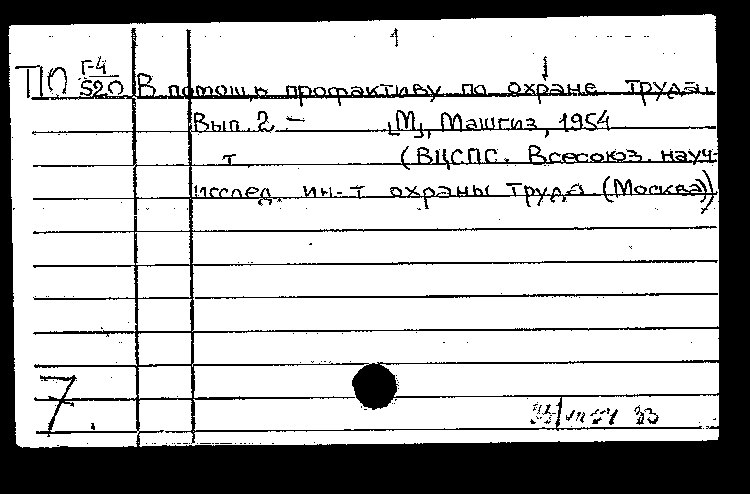 1
ПО Г-4
520 В помощь профактиву по охране труда.
Вып. 2. – [М], Машгиз, 1954
т. (ВЦСПС. Всесоюз. науч-
исслед. ин-т охраны труда (Москва))
7.